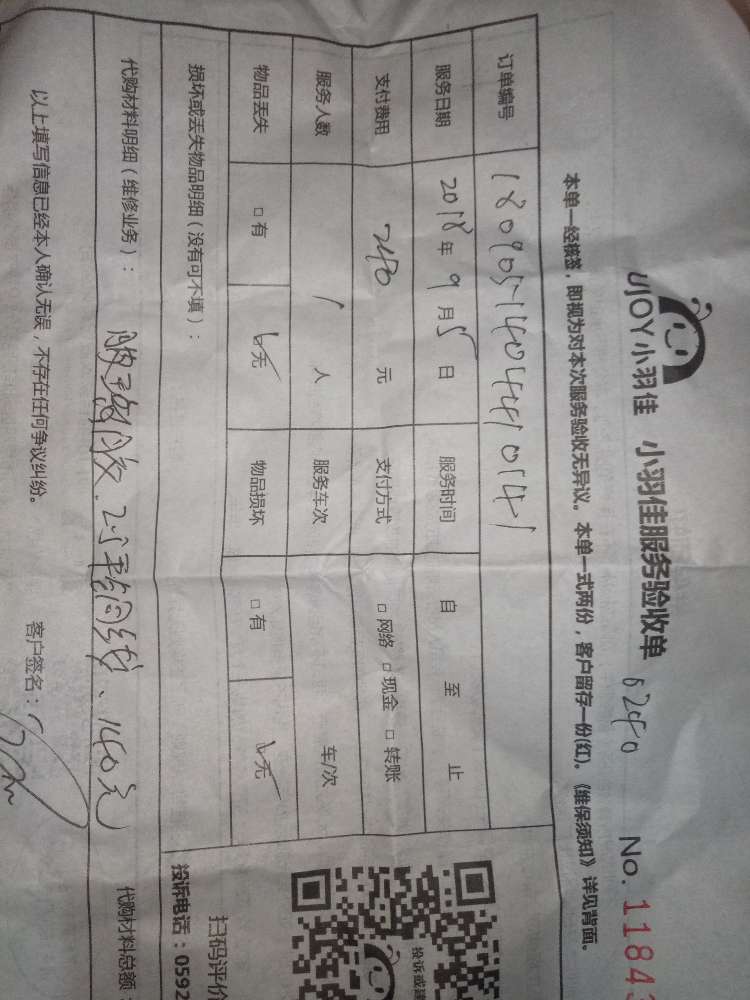 UJOY小羽佳 小羽佳服务验收单 6240 No. 11843
本单一经核签，即视为对本次服务验收无异议。本单一式两份，客户留存一份(红)。《维保须知》详见背面。
订单编号
服务日期 2018年9月5日 服务时间 自 至 止
支付费用 240 元 支付方式 □网络 □现金 □转账
服务人数 1 人 服务车次 车/次
物品丢失 □有 □无 物品损坏 □有 □无
损坏或丢失物品明细（没有可不填）：
代购材料明细（维修业务）： 140元 代购材料总额：
以上填写信息已经本人确认无误，不存在任何争议纠纷。 客户签名：
扫码评价
投诉电话：0592